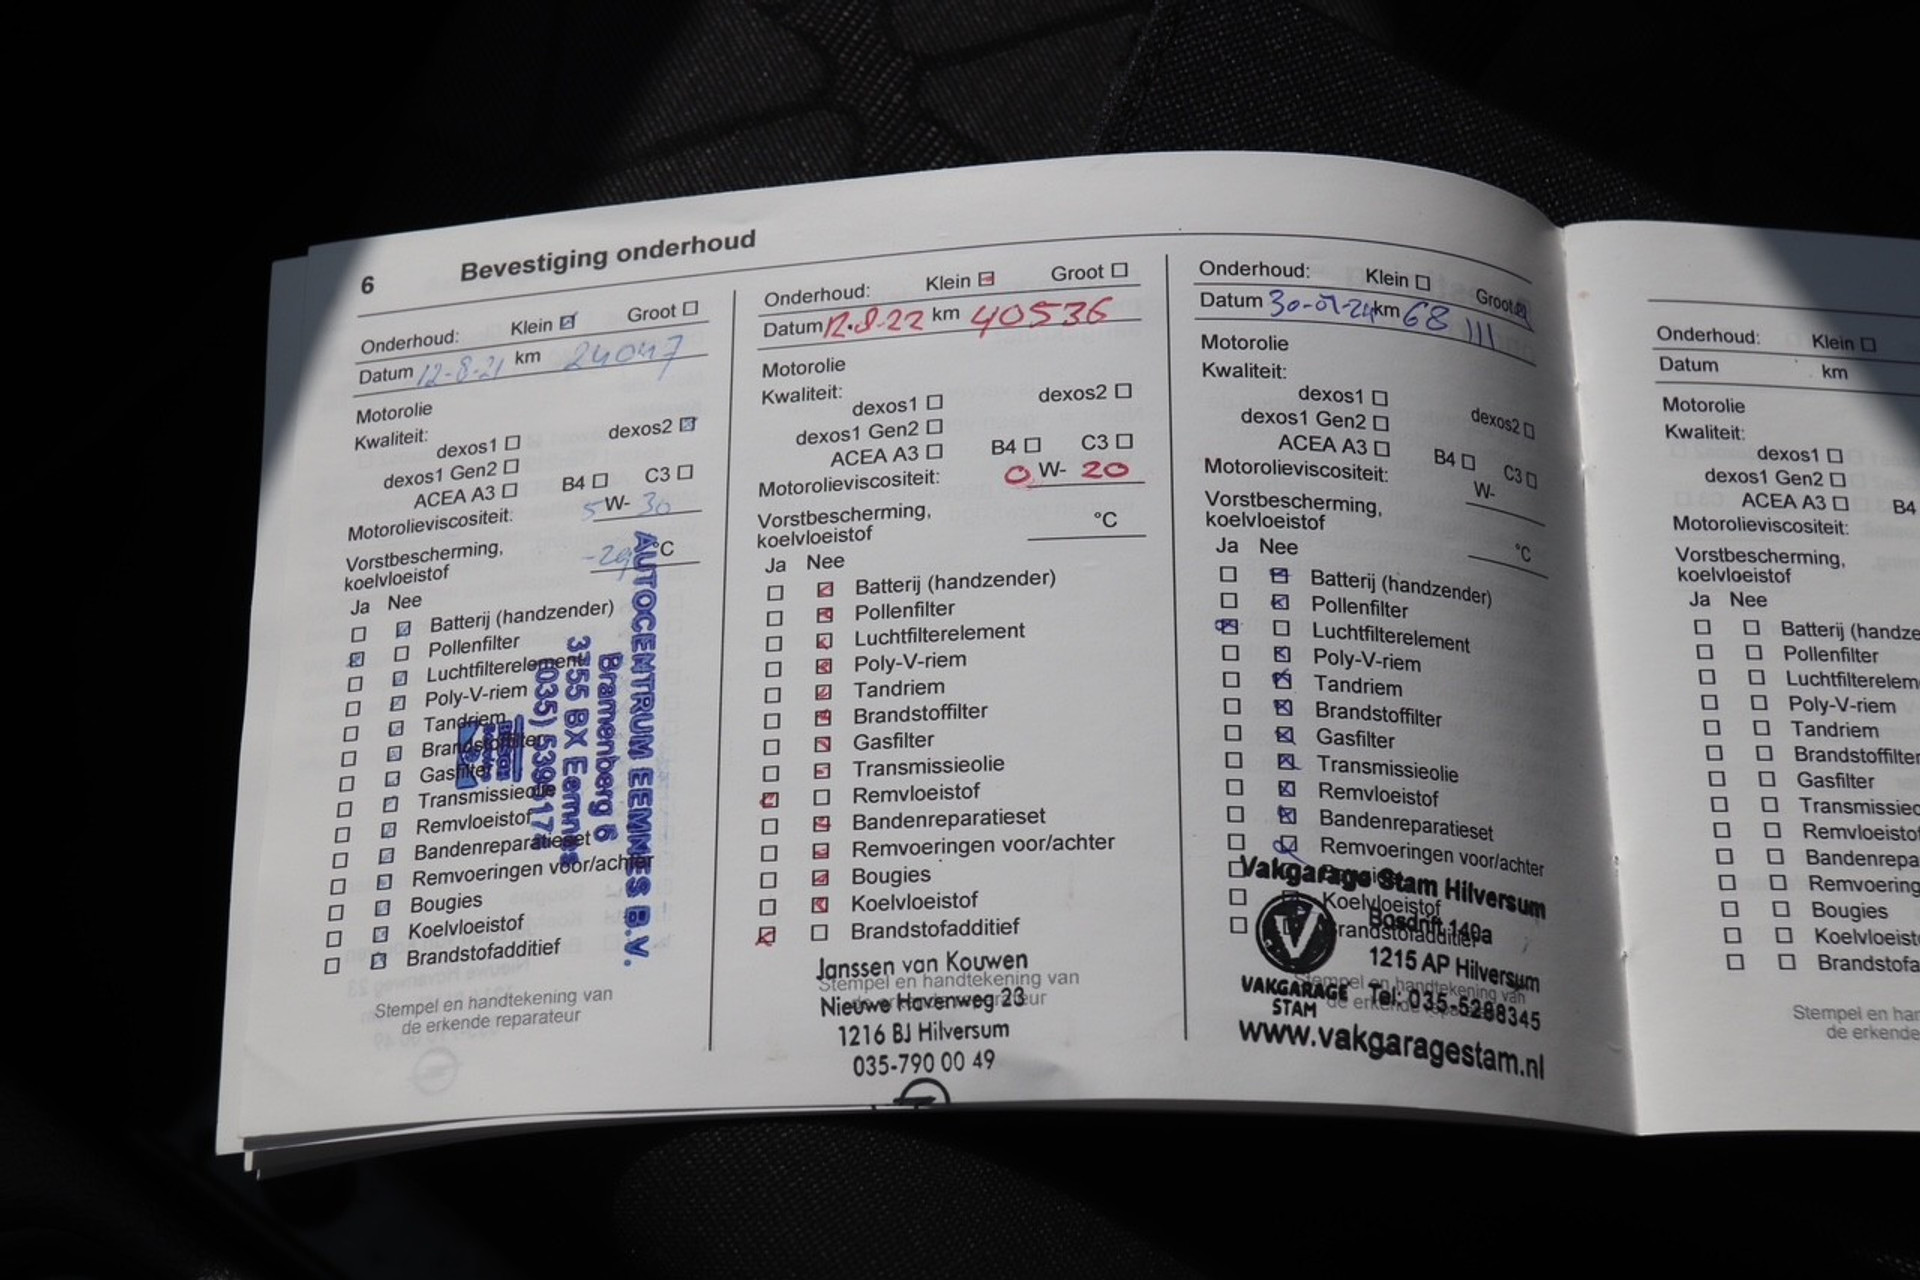 6 Bevestiging onderhoud
Onderhoud: Klein Groot
Datum 12-8-21 km 24047
Motorolie
Kwaliteit:
dexos1 dexos2
dexos1 Gen2
ACEA A3 B4 C3
Motorolieviscositeit: 5 W- 30
Vorstbescherming,
koelvloeistof °C
Ja Nee
Batterij (handzender)
Pollenfilter
Luchtfilterelement
Poly-V-riem
Tandriem
Brandstoffilter
Gasfilter
Transmissieolie
Remvloeistof
Bandenreparatieset
Remvoeringen voor/achter
Bougies
Koelvloeistof
Brandstofadditief
AUTOCENTRUM EEMNES B.V.
Bramenberg 6
3755 BX Eemnes
Stempel en handtekening van
de erkende reparateur
Onderhoud: Klein Groot
Datum 12-8-22 km 40536
Motorolie
Kwaliteit:
dexos1 dexos2
dexos1 Gen2
ACEA A3 B4 C3
Motorolieviscositeit: 0 W- 20
Vorstbescherming,
koelvloeistof °C
Ja Nee
Batterij (handzender)
Pollenfilter
Luchtfilterelement
Poly-V-riem
Tandriem
Brandstoffilter
Gasfilter
Transmissieolie
Remvloeistof
Bandenreparatieset
Remvoeringen voor/achter
Bougies
Koelvloeistof
Brandstofadditief
Janssen van Kouwen
Stempel en handtekening van
Nieuwe Havenweg 23
de erkende reparateur
1216 BJ Hilversum
035-790 00 49
Onderhoud: Klein Groot
Datum 30-01-24 km 68111
Motorolie
Kwaliteit:
dexos1 dexos2
dexos1 Gen2
ACEA A3 B4 C3
Motorolieviscositeit: W-
Vorstbescherming,
koelvloeistof °C
Ja Nee
Batterij (handzender)
Pollenfilter
Luchtfilterelement
Poly-V-riem
Tandriem
Brandstoffilter
Gasfilter
Transmissieolie
Remvloeistof
Bandenreparatieset
Remvoeringen voor/achter
Vakgarage Stam Hilversum
Koelvloeistof
Bosdrift 140a
Brandstofadditief
1215 AP Hilversum
Stempel en handtekening van
VAKGARAGE STAM
Tel: 035-5288345
de erkende reparateur
www.vakgaragestam.nl
Onderhoud: Klein
Datum km
Motorolie
Kwaliteit:
dexos1
dexos1 Gen2
ACEA A3 B4
Motorolieviscositeit:
Vorstbescherming,
koelvloeistof
Ja Nee
Batterij (handze
Pollenfilter
Luchtfilterelem
Poly-V-riem
Tandriem
Brandstoffilter
Gasfilter
Transmissieo
Remvloeistof
Bandenrepa
Remvoering
Bougies
Koelvloeist
Brandstofa
Stempel en han
de erkende